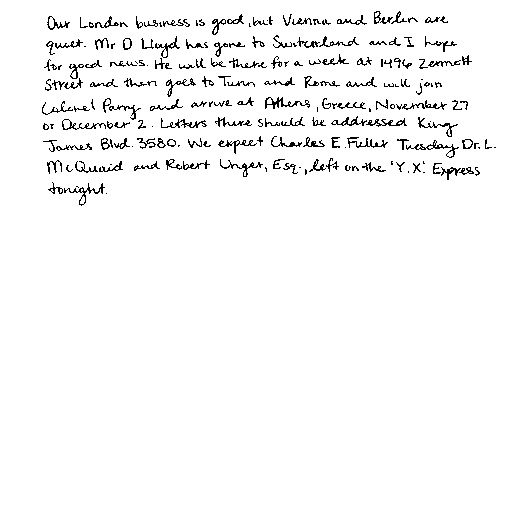 Our London business is good, but Vienna and Berlin are
quiet. Mr D Lloyd has gone to Switzerland and I hope
for good news. He will be there for a week at 1496 Zermott
Street and then goes to Turin and Rome and will join
Colonel Parry and arrive at Athens, Greece, November 27
or December 2. Letters there should be addressed King
James Blvd. 3580. We expect Charles E. Fuller Tuesday Dr. L.
McQuaid and Robert Unger, Esq., left on the 'Y.X.' Express
tonight.